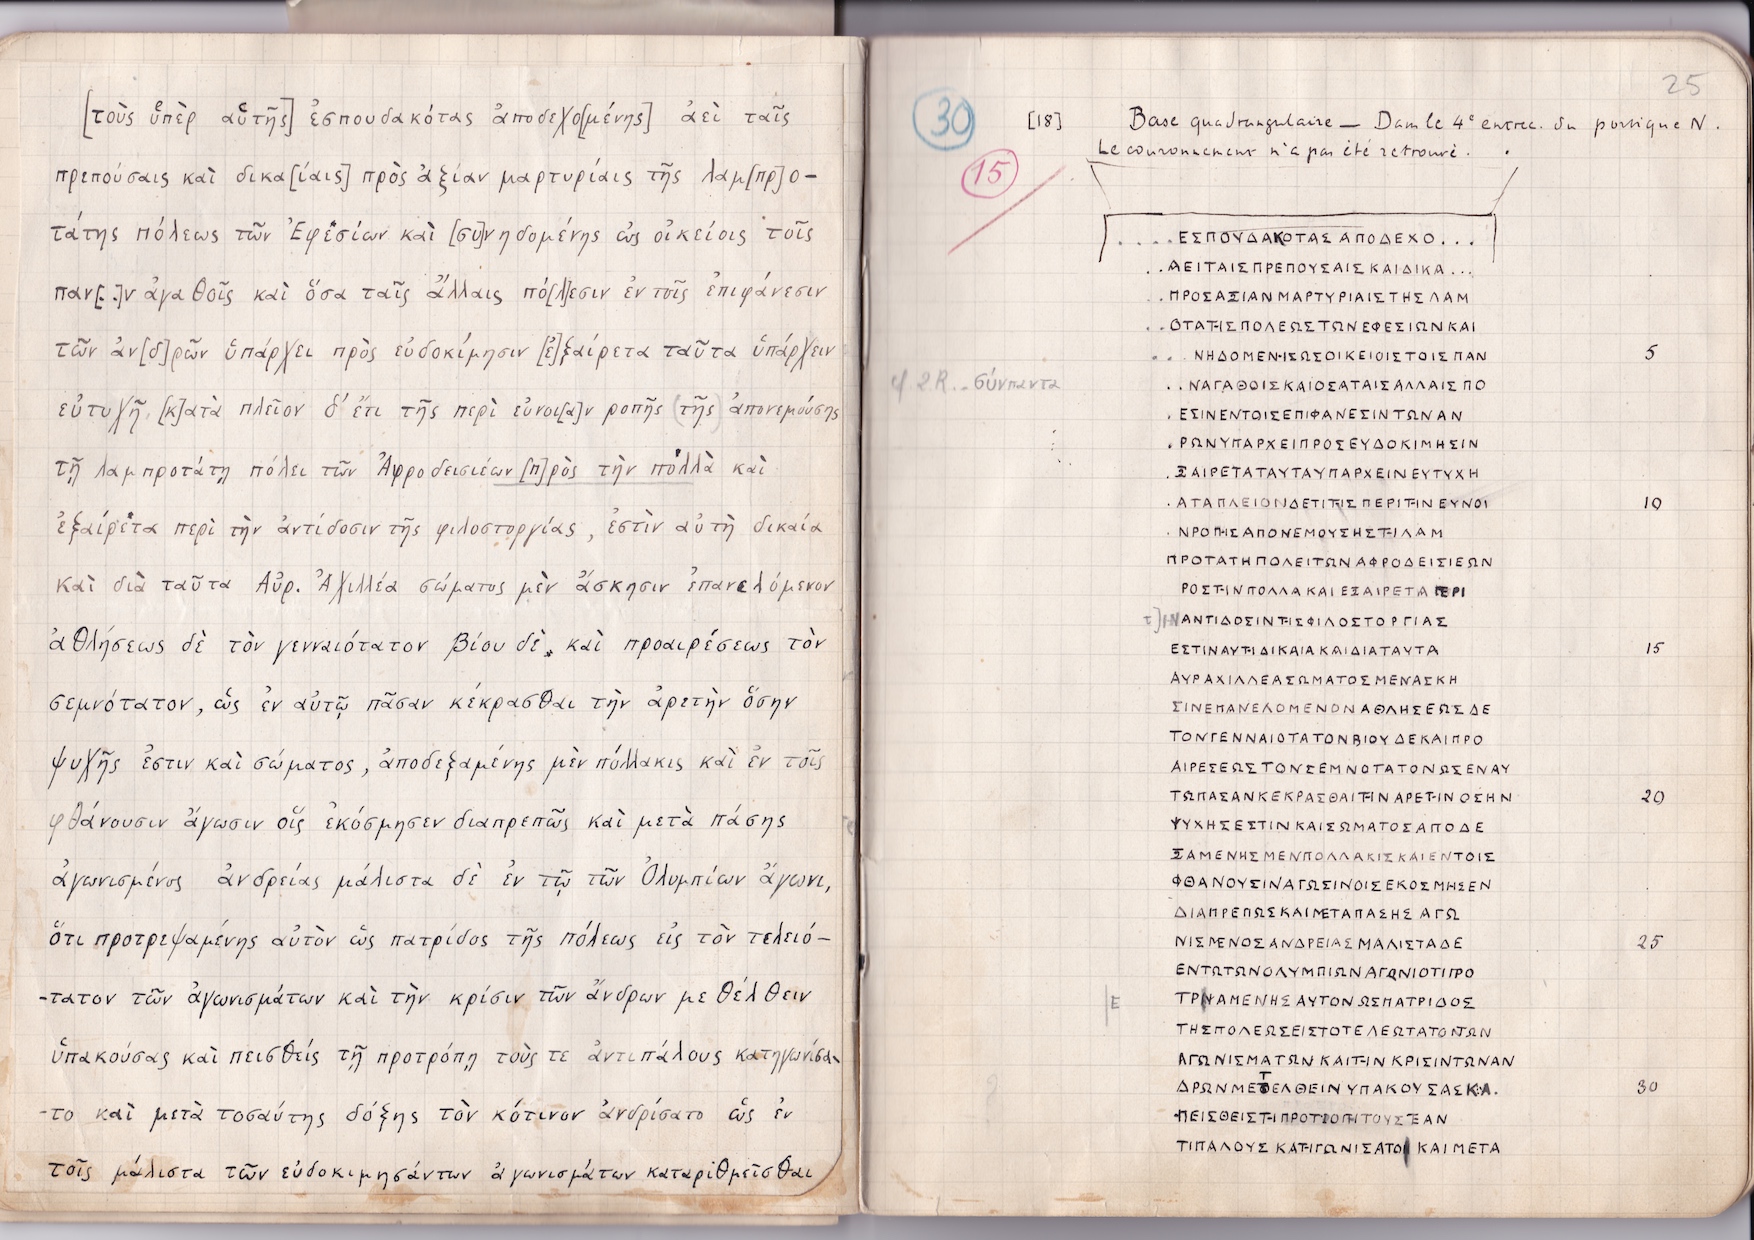 [τοὺς ὑπὲρ αὐτῆς] ἐσπουδακότας ἀποδεχο[μένης] ἀεὶ ταῖς
πρεπούσαις καὶ δικα[ίαις] πρὸς ἀξίαν μαρτυρίαις τῆς λαμ[πρ]ο-
τάτης πόλεως τῶν Ἐφεσίων καὶ [συ]νηδομένης ὡς οἰκείοις τοῖς
παν[. .]ν ἀγαθοῖς καὶ ὅσα ταῖς ἄλλαις πό[λ]εσιν ἐν τοῖς ἐπιφάνεσιν
τῶν ἀν[δ]ρῶν ὑπάρχει πρὸς εὐδοκίμησιν [ἐ]ξαίρετα ταῦτα ὑπάρχειν
εὐτυχῆ [κ]ατὰ πλεῖον δ' ἔτι τῆς περὶ εὐνοι[α]ν ροπῆς (τῆς) ἀπονεμούσης
τῇ λαμπροτάτῃ πόλει τῶν Ἀφροδεισιέων [π]ρὸς τὴν πόλλὰ καὶ
ἐξαίρετα περὶ τὴν ἀντίδοσιν τῆς φιλοστοργίας, ἐστὶν αὐτὴ δικαία
καὶ διὰ ταῦτα Αὐρ. Ἀχιλλέα σώματος μὲν ἄσκησιν ἐπανελόμενον
ἀθλήσεως δὲ τὸν γενναιότατον βίου δὲ καὶ προαιρέσεως τὸν
σεμνότατον, ὡς ἐν αὐτῷ πᾶσαν κέκρασθαι τὴν ἀρετὴν ὅσην
ψυχῆς ἐστιν καὶ σώματος, ἀποδεξαμένης μὲν πόλλακις καὶ ἐν τοῖς
φθάνουσιν ἄγωσιν οἷς ἐκόσμησεν διαπρεπῶς καὶ μετὰ πάσης
ἀγωνισμένος ἀνδρείας μάλιστα δὲ ἐν τῷ τῶν Ὀλυμπίων ἄγωνι,
ὅτι προτρεψαμένης αὐτὸν ὡς πατρίδος τῆς πόλεως εἰς τὸν τελειό-
-τατον τῶν ἀγωνισμάτων καὶ τὴν κρίσιν τῶν ἄνδρων μεθέλθειν
ὑπακούσας καὶ πεισθείς τῇ προτρόπῃ τοὺς τε ἀντιπάλους κατηγωνίσα-
-το καὶ μετὰ τοσαύτης δόξης τὸν κότινον ἀνδρίσατο ὡς ἐν
τοῖς μάλιστα τῶν εὐδοκιμησάντων ἀγωνισμάτων καταριθμεῖσθαι
25
30
15
[18] Base quadrangulaire — Dans le 4e entrec. du portique N.
Le couronnement n'a pas été retrouvé.
. . . . ΕΣΠΟΥΔΑΚΟΤΑΣΑΠΟΔΕΧΟ . . .
. . ΑΕΙΤΑΙΣΠΡΕΠΟΥΣΑΙΣΚΑΙΔΙΚΑ . . .
. . ΠΡΟΣΑΞΙΑΝΜΑΡΤΥΡΙΑΙΣΤΗΣΛΑΜ
. . ΟΤΑΤΗΣΠΟΛΕΩΣΤΩΝΕΦΕΣΙΩΝΚΑΙ
. . . ΝΗΔΟΜΕΝΗΣΩΣΟΙΚΕΙΟΙΣΤΟΙΣΠΑΝ 5
σύνπαντα
. . ΝΑΓΑΘΟΙΣΚΑΙΟΣΑΤΑΙΣΑΛΛΑΙΣΠΟ
. ΕΣΙΝΕΝΤΟΙΣΕΠΙΦΑΝΕΣΙΝΤΩΝΑΝ
. ΡΩΝΥΠΑΡΧΕΙΠΡΟΣΕΥΔΟΚΙΜΗΣΙΝ
. ΞΑΙΡΕΤΑΤΑΥΤΑΥΠΑΡΧΕΙΝΕΥΤΥΧΗ
. ΑΤΑΠΛΕΙΟΝΔΕΤΙΤΗΣΠΕΡΙΤΗΝΕΥΝΟΙ 10
. ΝΡΟΠΗΣΑΠΟΝΕΜΟΥΣΗΣΤΗΛΑΜ
ΠΡΟΤΑΤΗΠΟΛΕΙΤΩΝΑΦΡΟΔΕΙΣΙΕΩΝ
ΡΟΣΤΗΝΠΟΛΛΑΚΑΙΕΞΑΙΡΕΤΑΠΕΡΙ
τ]ΗΝΑΝΤΙΔΟΣΙΝΤΗΣΦΙΛΟΣΤΟΡΓΙΑΣ
ΕΣΤΙΝΑΥΤΗΔΙΚΑΙΑΚΑΙΔΙΑΤΑΥΤΑ 15
ΑΥΡΑΧΙΛΛΕΑΣΩΜΑΤΟΣΜΕΝΑΣΚΗ
ΣΙΝΕΠΑΝΕΛΟΜΕΝΟΝΑΘΛΗΣΕΩΣΔΕ
ΤΟΝΓΕΝΝΑΙΟΤΑΤΟΝΒΙΟΥΔΕΚΑΙΠΡΟ
ΑΙΡΕΣΕΩΣΤΟΝΣΕΜΝΟΤΑΤΟΝΩΣΕΝΑΥ
ΤΩΠΑΣΑΝΚΕΚΡΑΣΘΑΙΤΗΝΑΡΕΤΗΝΟΣΗΝ 20
ΨΥΧΗΣΕΣΤΙΝΚΑΙΣΩΜΑΤΟΣΑΠΟΔΕ
ΞΑΜΕΝΗΣΜΕΝΠΟΛΛΑΚΙΣΚΑΙΕΝΤΟΙΣ
ΦΘΑΝΟΥΣΙΝΑΓΩΣΙΝΟΙΣΕΚΟΣΜΗΣΕΝ
ΔΙΑΠΡΕΠΩΣΚΑΙΜΕΤΑΠΑΣΗΣΑΓΩ
ΝΙΣΜΕΝΟΣΑΝΔΡΕΙΑΣΜΑΛΙΣΤΑΔΕ 25
ΕΝΤΩΤΩΝΟΛΥΜΠΙΩΝΑΓΩΝΙΟΤΙΠΡΟ
Ε ΤΡΨΑΜΕΝΗΣΑΥΤΟΝΩΣΠΑΤΡΙΔΟΣ
ΤΗΣΠΟΛΕΩΣΕΙΣΤΟΤΕΛΕΩΤΑΤΟΝΤΩΝ
ΑΓΩΝΙΣΜΑΤΩΝΚΑΙΤΗΝΚΡΙΣΙΝΤΩΝΑΝ
ΔΡΩΝΜΕΤΕΛΘΕΙΝΥΠΑΚΟΥΣΑΣΚΑ. 30
ΠΕΙΣΘΕΙΣΤΗΠΡΟΤΡΟΠΗΤΟΥΣΤΕΑΝ
ΤΙΠΑΛΟΥΣΚΑΤΗΓΩΝΙΣΑΤΟΚΑΙΜΕΤΑ